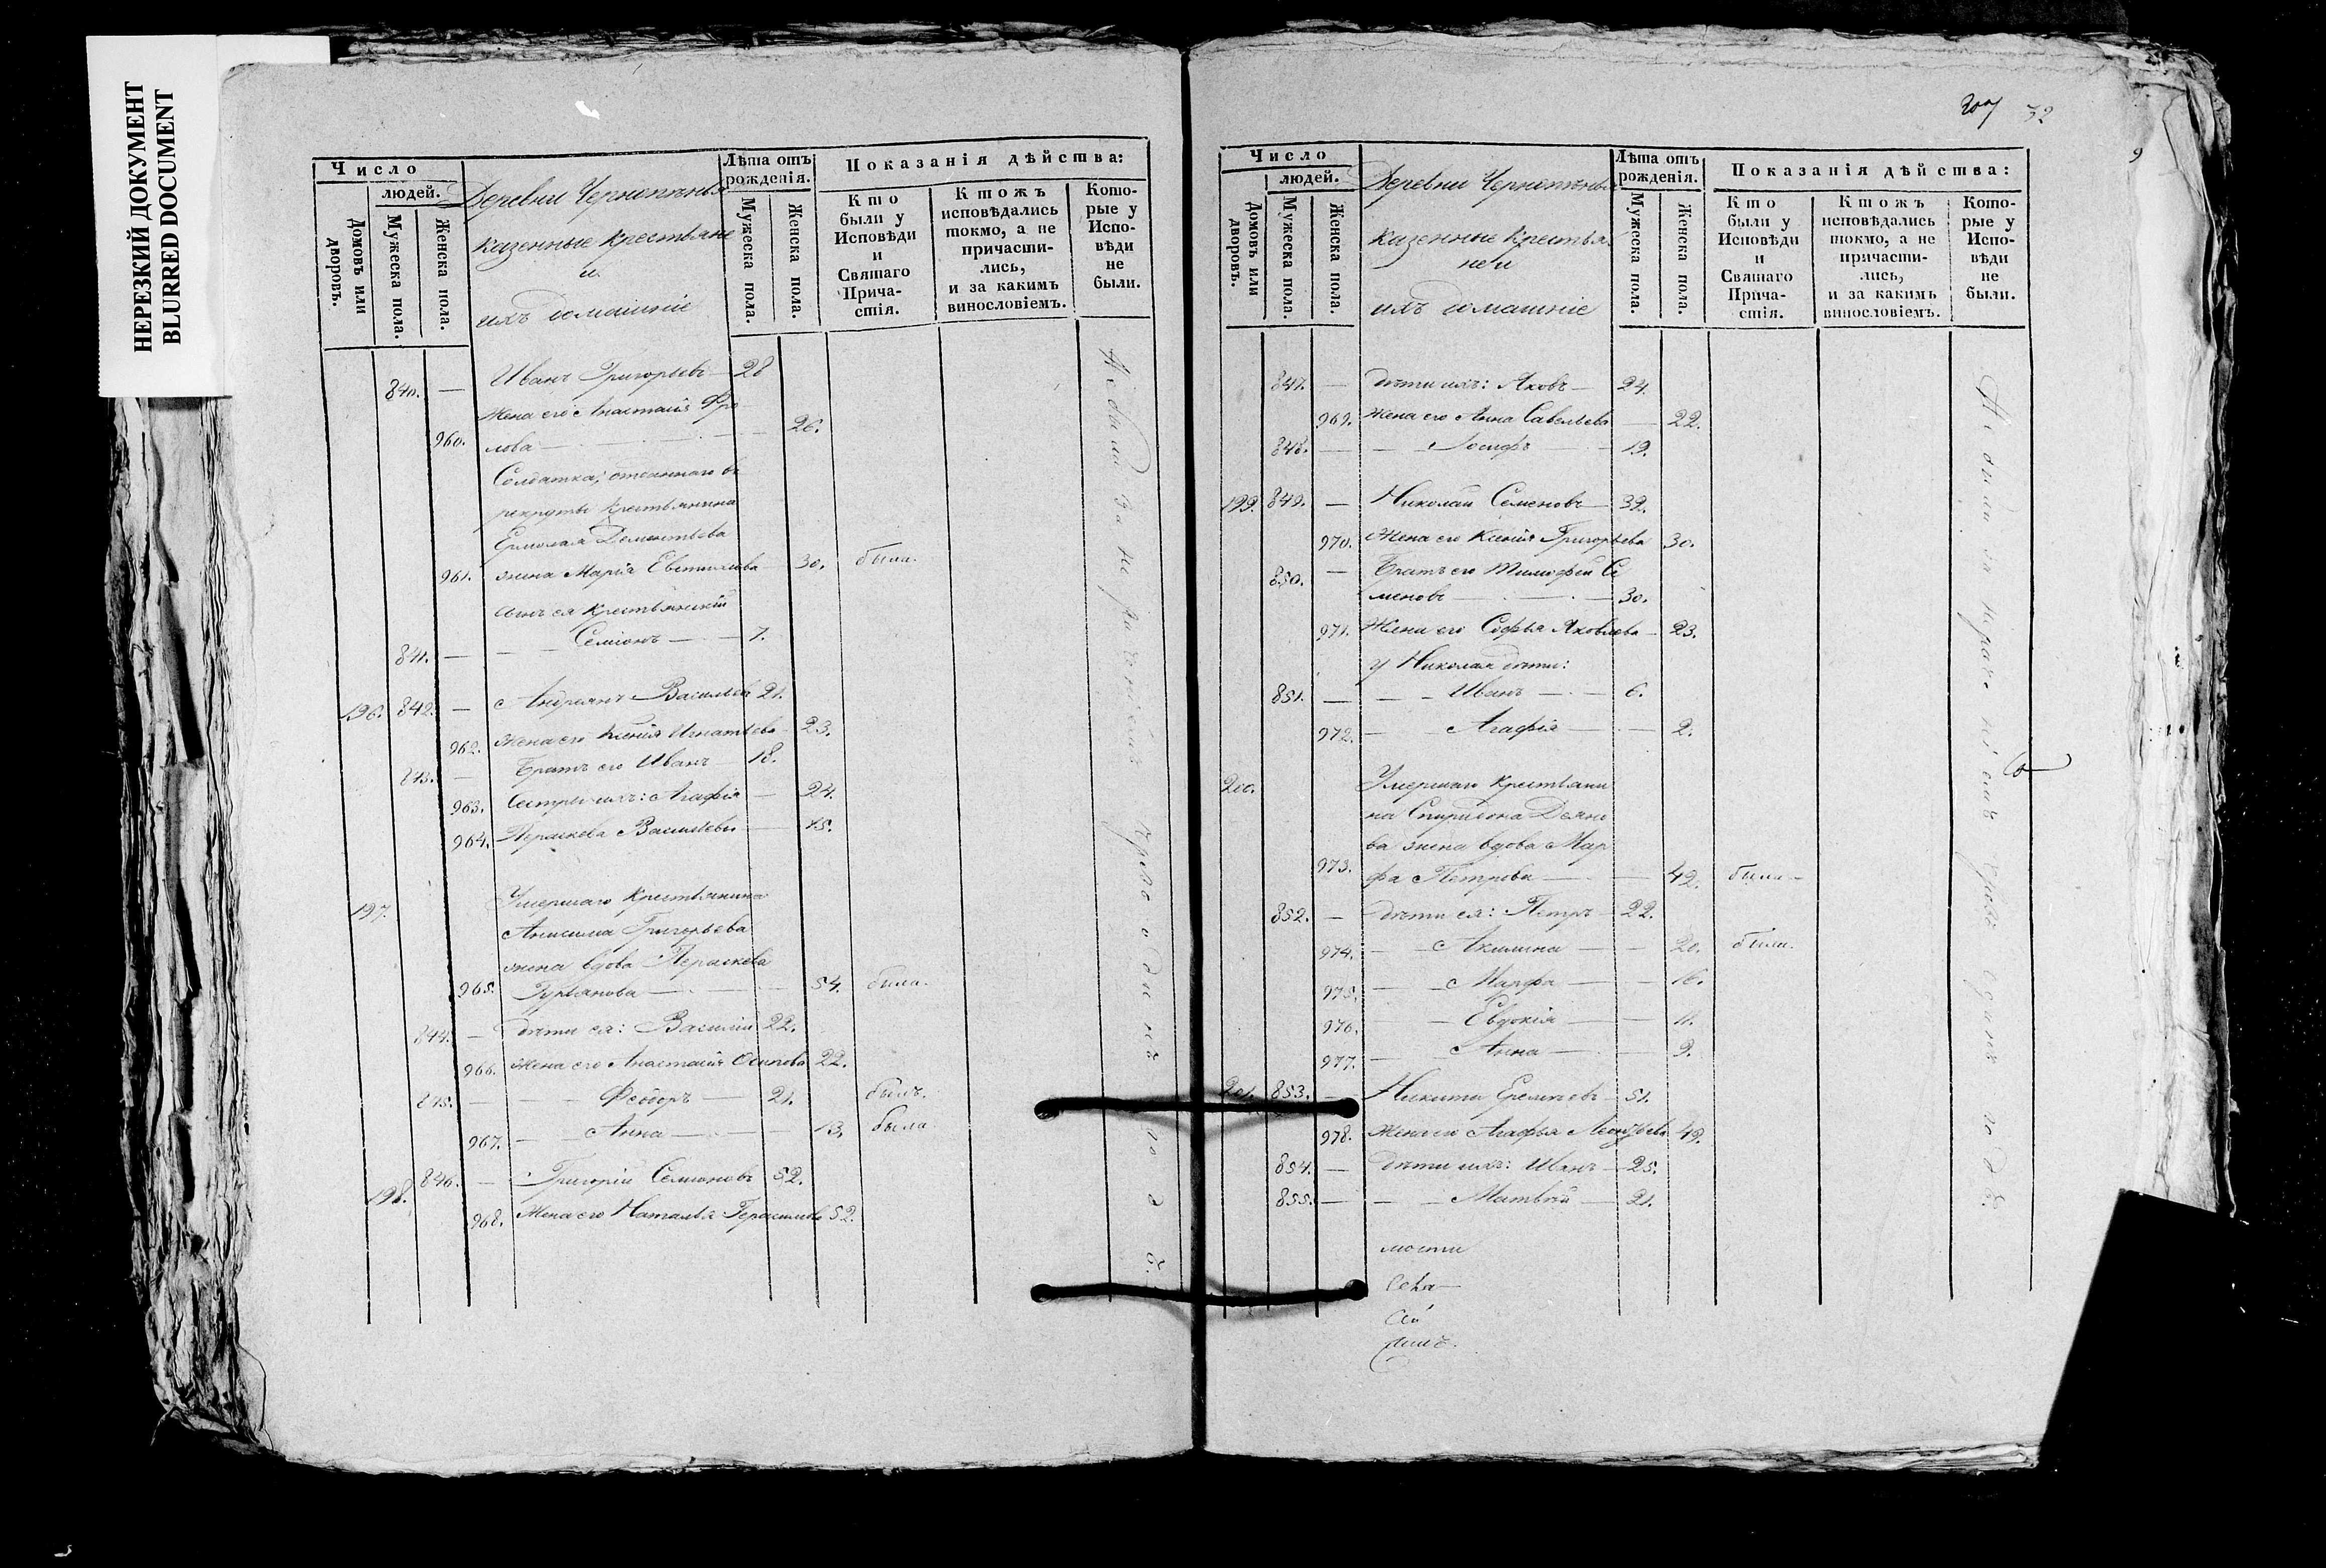 НЕРЕЗКИЙ ДОКУМЕНТ
BLURRED DOCUMENT
Число
людей.
Домовъ или дворовъ.
Мужеска пола.
Женска пола.
Деревни
казенные крестьяне
и
ихъ домашніе
Лѣта отъ рожденія.
Мужеска пола.
Женска пола.
Показанія дѣйства:
Кто были у Исповѣди и Святаго Прича-стія.
Ктожъ исповѣдались токмо, а не причасти-лись, и за какимъ винословіемъ.
Кото-рые у Испо-вѣди не были.
840. — Иванъ Григорьевъ — 28
жена его Анастасія Фро
960. лова — 26.
Солдатка, отданнаго въ
рекруты крестьянина
Ермолая Дементьева
961. жена Марія — 30. была.
сынъ ея крестьянскій
841. — Семіонъ — 7.
196. 842. — Андреянъ Васильевъ 21.
962. жена его Ксенія Игнатьева 23.
843. — Братъ его Иванъ — 18.
963. Сестры ихъ: Агафія — 24.
964. Параскева Васильевы — 15.
197. Умершаго крестьянина
Анисима Григорьева
жена вдова Параскева
965. Гурьянова — 54. была.
844. — дѣти ея: Василій 22.
966. жена его Анастасія Осипова 22.
845. — Феодоръ — 21. былъ.
967. — Анна — 13. была
198. 846. — Григорій Семіоновъ 52.
968. Жена его Наталья Герасимова 52.
207 32
Число
людей.
Домовъ или дворовъ.
Мужеска пола.
Женска пола.
Деревни
казенные крестья
не и
ихъ домашніе
Лѣта отъ рожденія.
Мужеска пола.
Женска пола.
Показанія дѣйства:
Кто были у Исповѣди и Святаго Прича-стія.
Ктожъ исповѣдались токмо, а не причасти-лись, и за какимъ винословіемъ.
Кото-рые у Испо-вѣди не были.
847. — дѣти ихъ: Яковъ — 24.
969. жена его Анна Савельева — 22.
848. — Іосифъ — 19.
199. 849. — Николай Семеновъ — 32.
970. Жена его Ксенія Григорьева 30.
850. — Братъ его Тимофей Се
меновъ — 30.
971. Жена его Софья Яковлева — 23.
у Николая дѣти:
851. — Иванъ — 6.
972. — Агафія — 2.
200. Умершаго крестьяни
на Спиридона
ва жена вдова Мар
973. фа Петрова — 42. была
852. — дѣти ея: Петръ — 22.
974. — Акилина — 20. была.
975. — Марфа — 16.
976. — Евдокія — 11.
977. — Анна — 9.
201. 853. — Никита — 51.
978. Жена его Агафья Леонтьева 49.
854. — дѣти ихъ: Иванъ — 25.
855. — Матвѣй — 21.